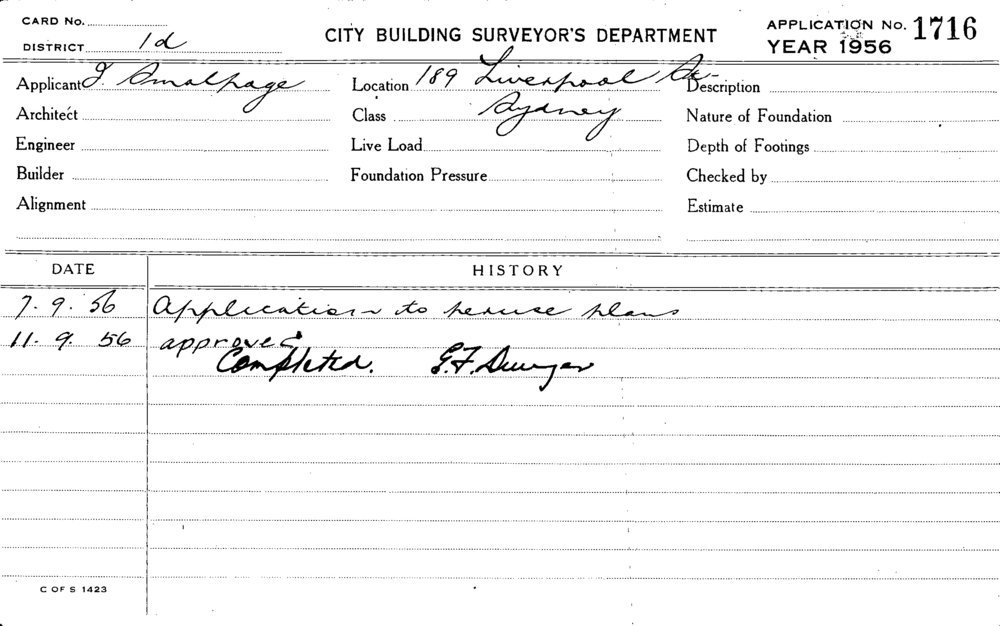 CARD No.
DISTRICT 1d
CITY BUILDING SURVEYOR'S DEPARTMENT
APPLICATION No. 1716
YEAR 1956
Applicant J. Smalpage
Location 189 Liverpool St.
Description
Architect
Class Sydney
Nature of Foundation
Engineer
Live Load
Depth of Footings
Builder
Foundation Pressure
Checked by
Alignment
Estimate
DATE HISTORY
7. 9. 56 Application to peruse plans
11. 9. 56 approved
Completed. G.F.
C OF S 1423